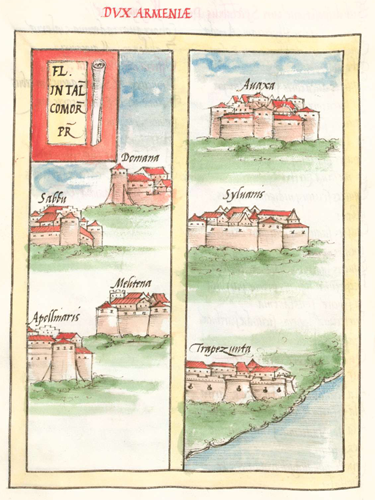 DVX ARMENIÆ
FL.
INTAL
COMOR̄
PR̄
Auaxa
Domana
Sabbu
Syluanis
Melitena
Apollinaris
Trapezunta